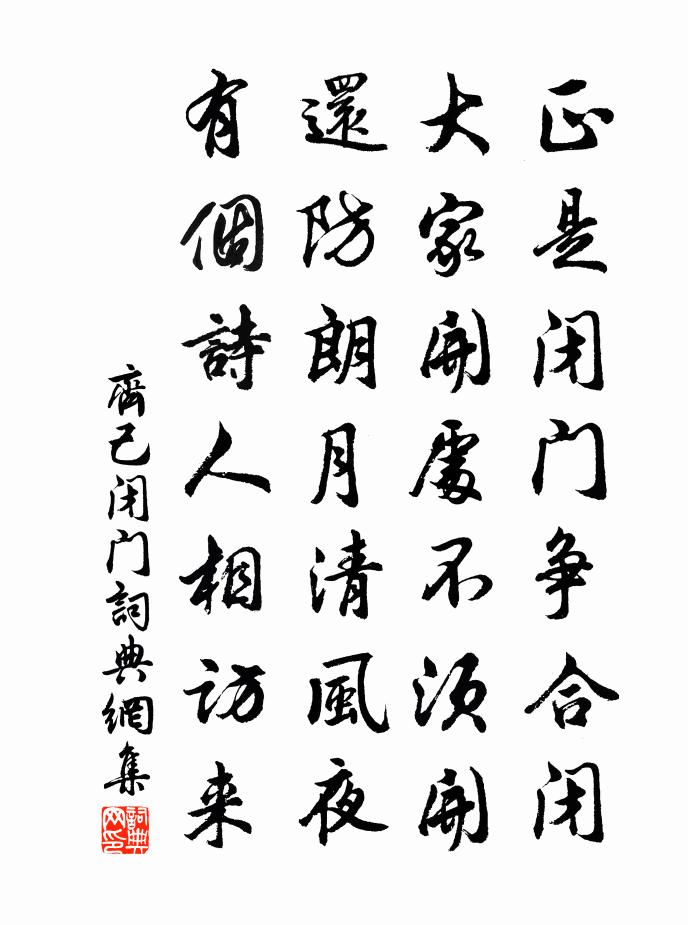 正是闭门争合闭
大家開處不须開
還防朗月清風夜
有個詩人相访来
齊己闭门詞典網集
詞典网印